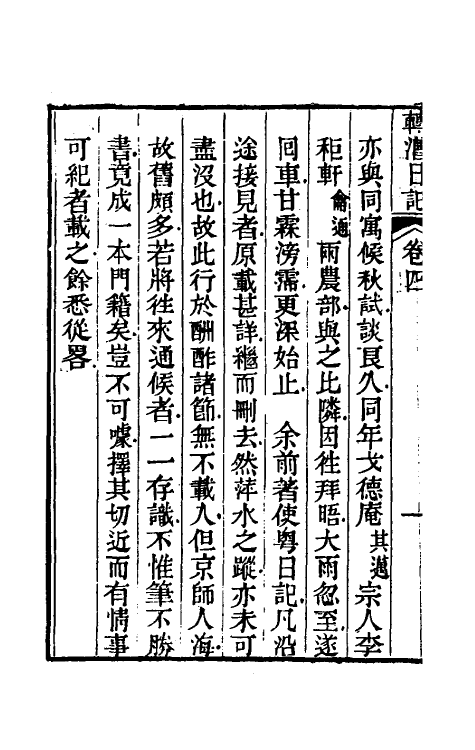 轉漕日記
卷四
一
亦與同寓候秋試談良久同年戈德庵其邁宗人李
秬軒龠通兩農部與之比隣因徃拜晤大雨忽至遂
囘車甘霖滂霈更深始止　余前著使粤日記凡沿
途接見者原載甚詳繼而刪去然萍水之蹤亦未可
盡沒也故此行於酬酢諸節無不載入但京師人海
故舊頗多若將徃來通候者一一存識不惟筆不勝
書竟成一本門籍矣豈不可噱擇其切近而有情事
可紀者載之餘悉從畧